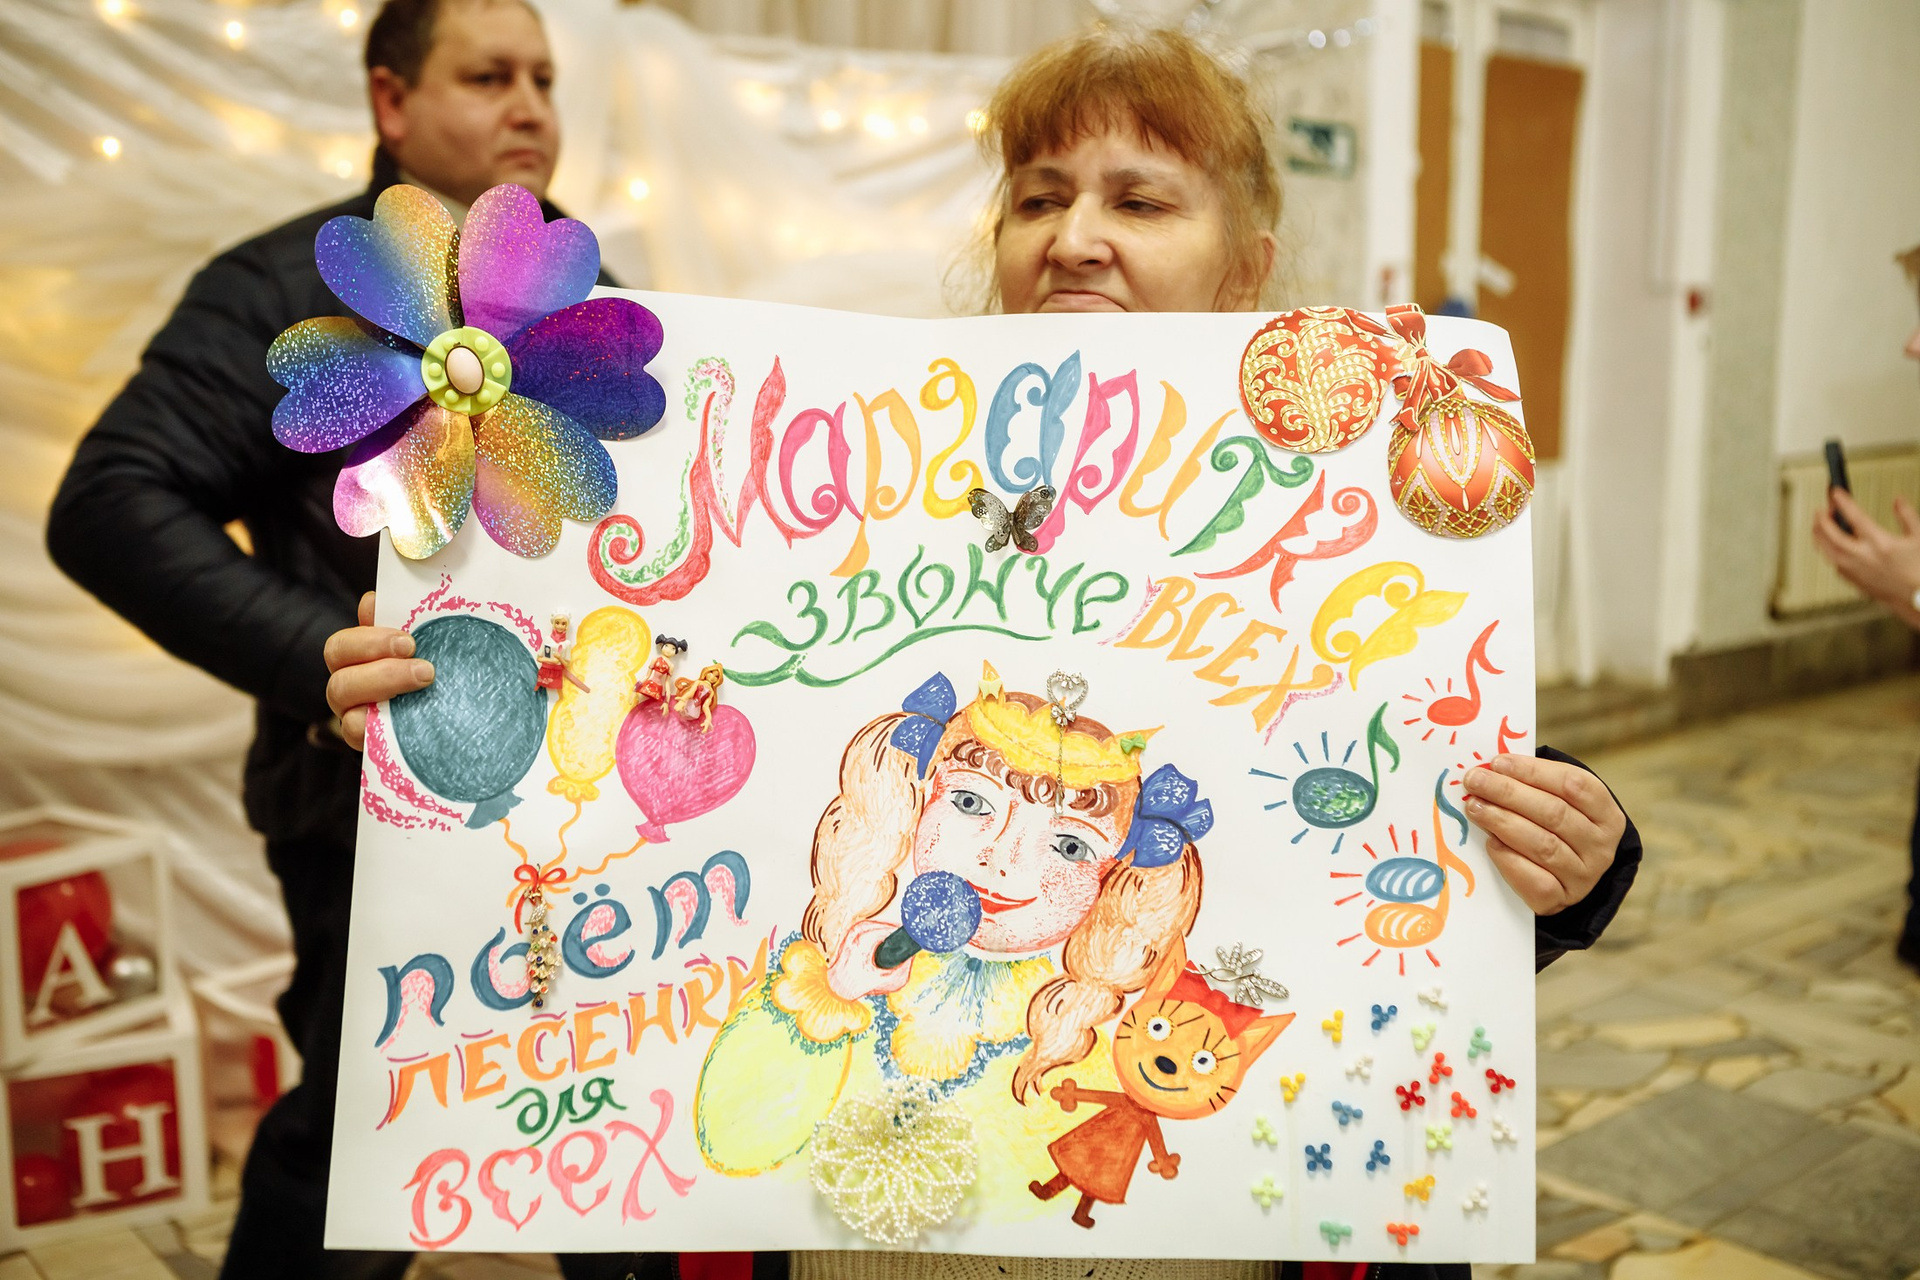 Маргаритка
звонче всех
поём
песенки
для
всех
А
Н